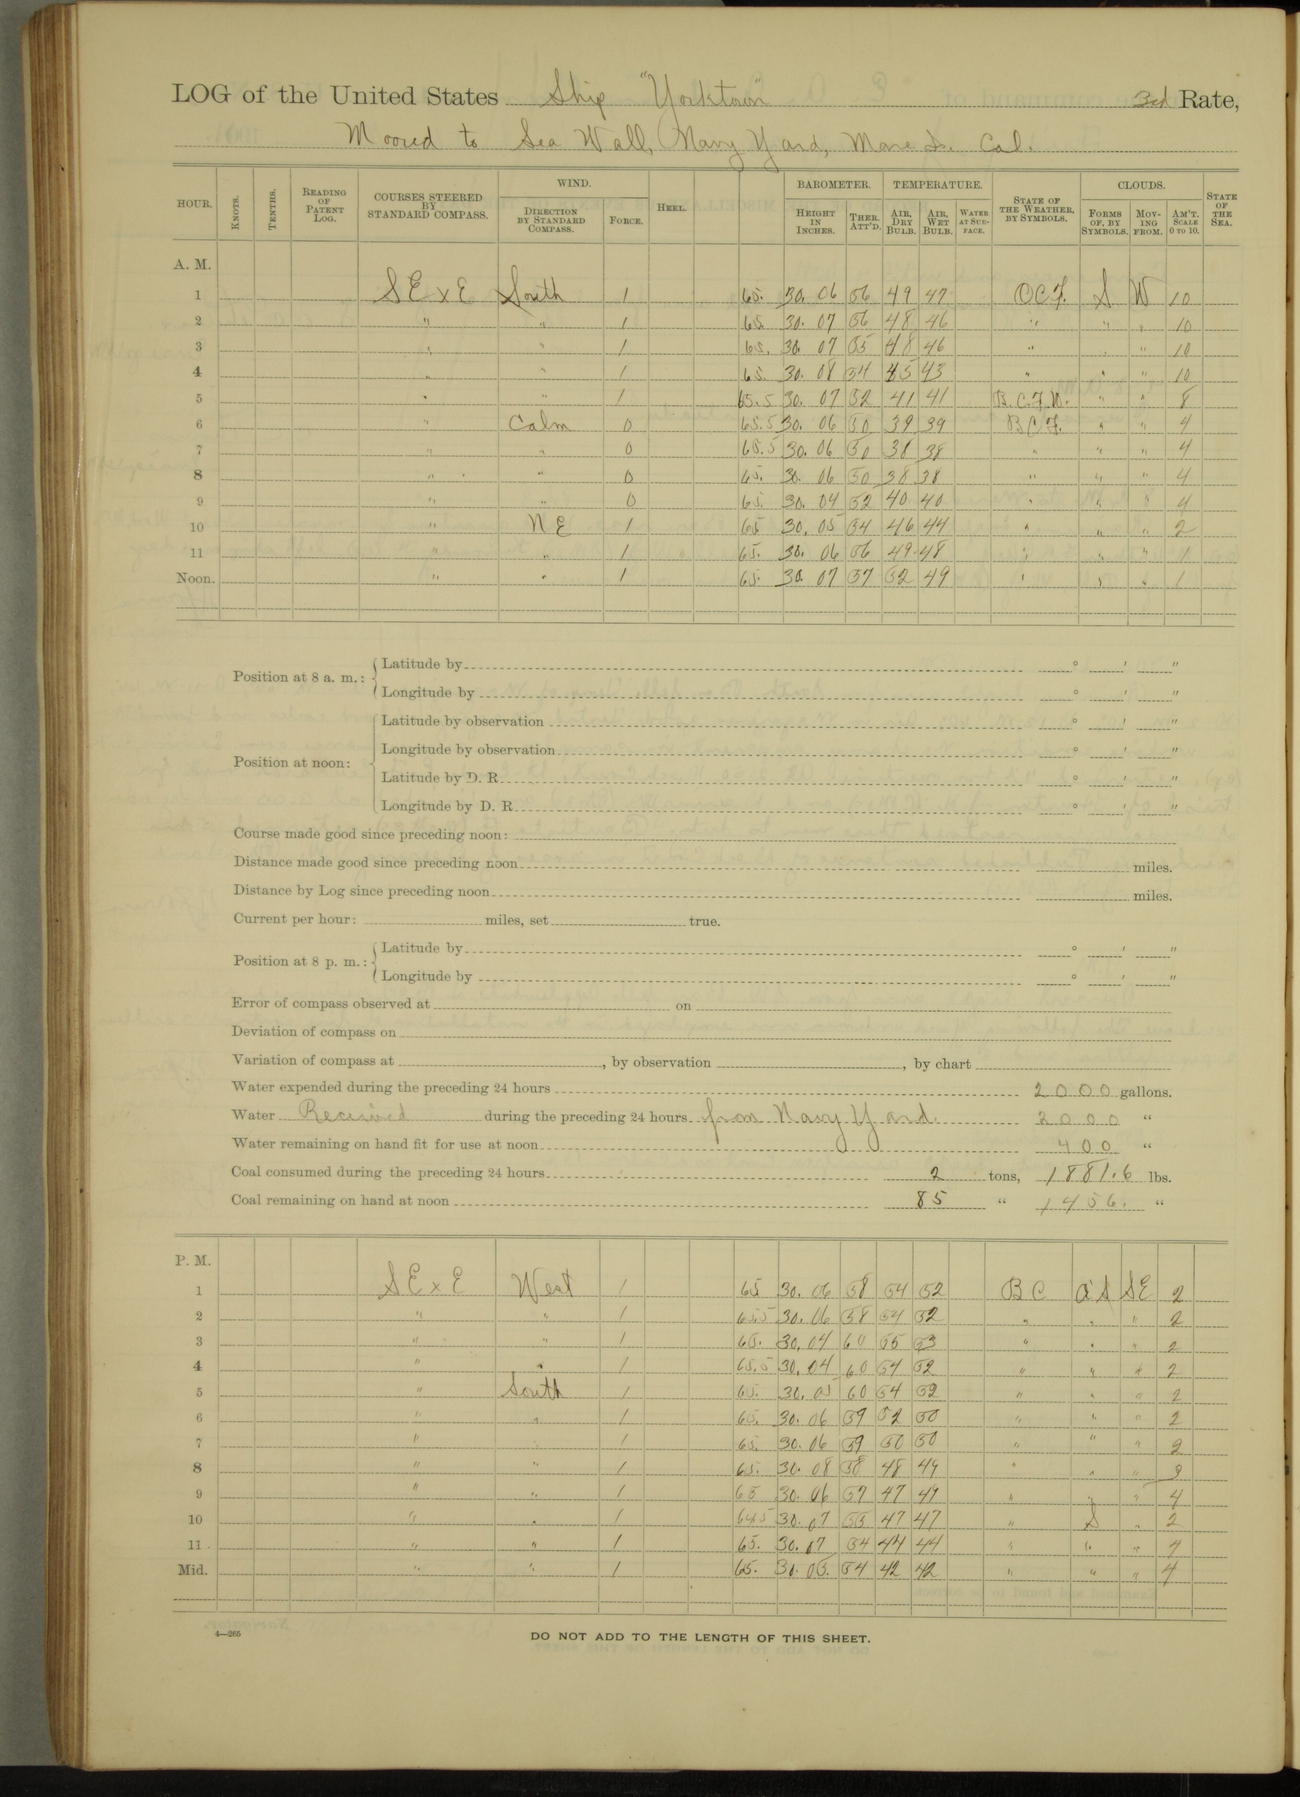 LOG of the United States Ship "Yorktown" 3rd Rate,
Moored to Sea Wall, Navy Yard, Mare Is. Cal.
HOUR. KNOTS. TENTHS. READING OF PATENT LOG. COURSES STEERED BY STANDARD COMPASS. WIND. DIRECTION BY STANDARD COMPASS. FORCE. HEEL. BAROMETER. HEIGHT IN INCHES. THER. ATT'D. TEMPERATURE. AIR, DRY BULB. AIR, WET BULB. WATER AT SURFACE. STATE OF THE WEATHER, BY SYMBOLS. CLOUDS. FORMS OF, BY SYMBOLS. MOVING FROM. AM'T. SCALE 0 TO 10. STATE OF THE SEA.
A. M.
1 SE x E South 1 65. 30. 06 56 49 47 O C F. S W 10
2 " " 1 65 30. 07 56 48 46 " " " 10
3 " " 1 65. 30. 07 55 48 46 " " " 10
4 " " 1 65. 30. 08 54 45 43 " " " 10
5 " " 1 65.5 30. 07 52 41 41 B. C. F. W. " " 8
6 " Calm 0 65.5 30. 06 50 39 39 B C F. " " 4
7 " " 0 65.5 30. 06 50 38 38 " " " 4
8 " " 0 65. 30. 06 50 38 38 " " " 4
9 " " 0 65. 30. 04 52 40 40 " " " 4
10 " N E 1 65 30. 05 54 46 44 " " " 2
11 " " 1 65. 30. 06 56 49 48 " " " 1
Noon. " " 1 65. 30. 07 57 52 49 " " " 1
Position at 8 a. m.: Latitude by ° ' "
Longitude by ° ' "
Position at noon: Latitude by observation ° ' "
Longitude by observation ° ' "
Latitude by D. R. ° ' "
Longitude by D. R. ° ' "
Course made good since preceding noon:
Distance made good since preceding noon miles.
Distance by Log since preceding noon miles.
Current per hour: miles, set true.
Position at 8 p. m.: Latitude by ° ' "
Longitude by ° ' "
Error of compass observed at on
Deviation of compass on
Variation of compass at , by observation , by chart
Water expended during the preceding 24 hours 2000 gallons.
Water Received during the preceding 24 hours from Navy Yard. 2000 "
Water remaining on hand fit for use at noon 400 "
Coal consumed during the preceding 24 hours 2 tons, 1881.6 lbs.
Coal remaining on hand at noon 85 " 1456. "
P. M.
1 SE x E West 1 65 30. 06 58 54 52 B C A'S SE 2
2 " " 1 65.5 30. 06 58 54 52 " " " 2
3 " " 1 65. 30. 04 60 55 53 " " " 2
4 " " 1 65.5 30. 04 60 54 52 " " " 2
5 " South 1 65. 30. 05 60 54 52 " " " 2
6 " " 1 65. 30. 06 59 52 50 " " " 2
7 " " 1 65. 30. 06 59 50 50 " " " 2
8 " " 1 65. 30. 08 58 48 49 " " " 3
9 " " 1 65 30. 06 57 47 47 " " " 4
10 " " 1 64.5 30. 07 55 47 47 " S " 2
11 " " 1 65. 30. 07 54 44 44 " " " 4
Mid. " " 1 65. 30. 05. 54 42 42 " " " 4
4—265
DO NOT ADD TO THE LENGTH OF THIS SHEET.